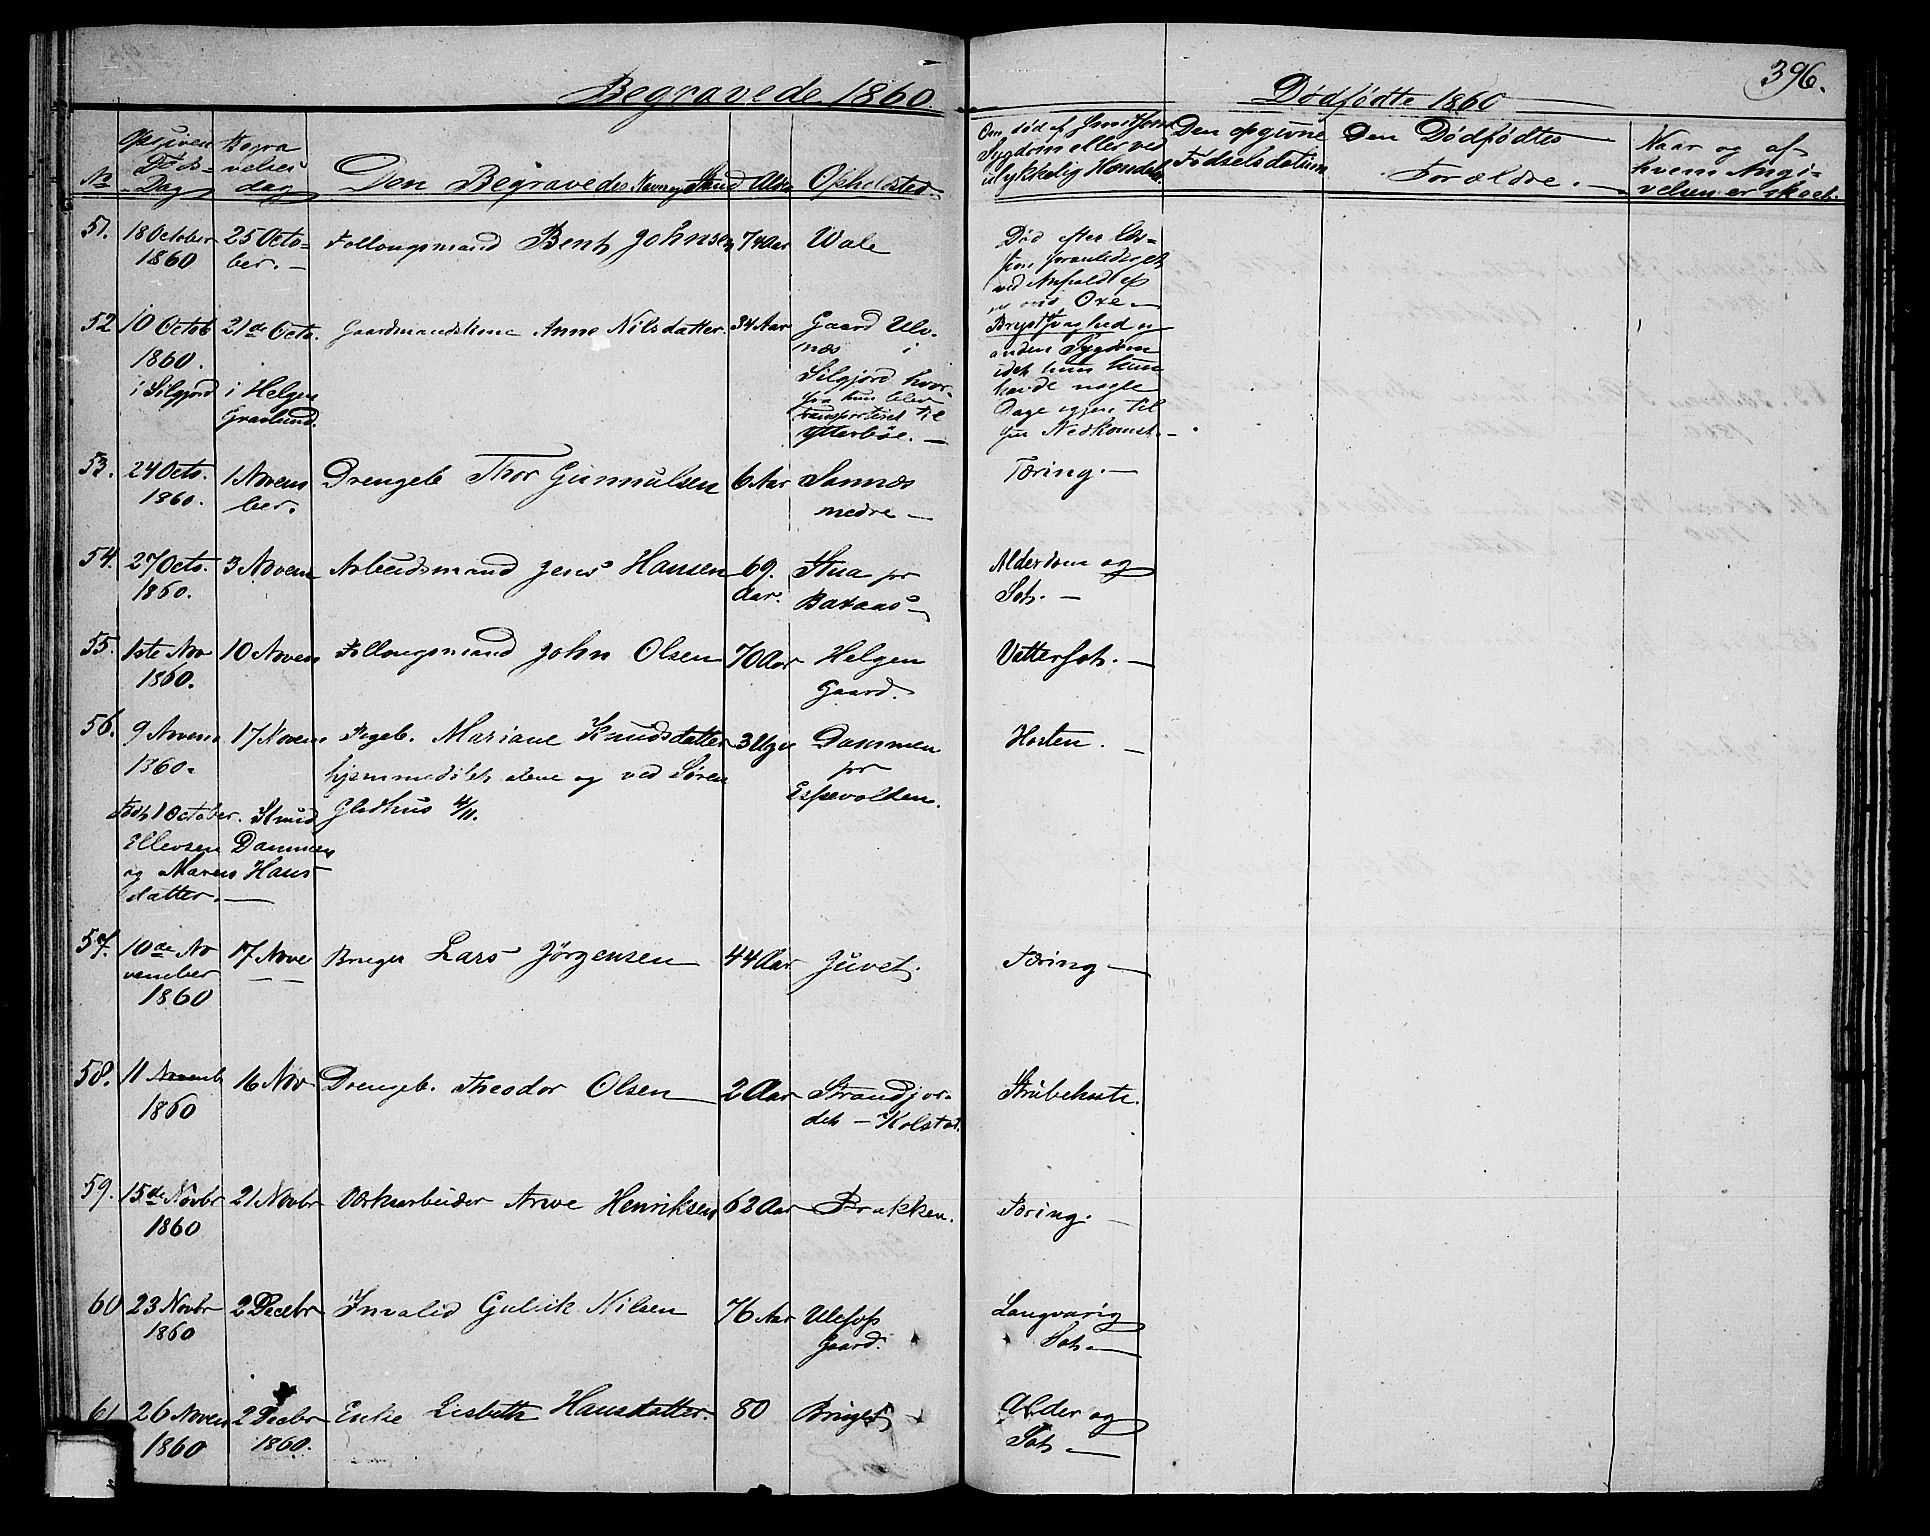 396.
Begravede 1860.
Dødfødte 1860
No Opgiven Døds-Dag Begravelses dag Den Begravedes Navn og Stand Alder Opholdsted
Om død af Smitsom Sygdom eller ved ulykkelig Hændelse Den opgivne Fødselsdatum Den Dødfødtes Forældre. Naar og af hvem Angivelsen er skeet.
51. 18 October 25 Octo- Follougsmand Bent Johnsen 74 Aar Vale Død efter
1860 ber. foranlediget
ved Anfald af
Oxe
52 10 Octob 21de Octo. Gaardmandskone Anne Nilsdatter. 34 Aar Gaard Ulv- Brystsvaghed og
1860. næs i anden Sygdom
i Silgjord i Helgen Silgjord hvor- idet hun kun
Gravlund. fra hun blev havde nogle
transporteret til Dage igjen til
Ytterbøe. sin Nedkomst.
53. 24 Octo. 1 Novem Drengeb Thor Gunnulsen 6 Aar Sannæs Tæring.
1860. ber. nedre
54. 27 Octo. 3 Novem Arbeidsmand Jens Hansen 69. Stua pr Alderdom og
1860. Aar. Baxaas Sot.
55. 1ste Nov 10 Novem Follougsmand John Olsen 70 Aar Helgen Vattersot.
1860. Gaard.
56. 9 Novem 17 Novem Pigeb. Mariane Knudsdatter 3 Uger Dammen Hosten.
1860. hjemmedøbt alene og ved Søren pr
Født 1 October. Knud Gladhus 4/11. Espevolten.
Ellevsen Dammen
og Maren Hans
datter.
57. 10de No 17 Nove Bruger Lars Jørgensen 44 Aar Juvet. Tæring
vember
1860
58. 11 Novemb 16 Nov Drengeb. Theodor Olsen 2 Aar Strandjor- Strubehoste.
1860 det - Kolstad.
59. 15de Novbr 21 Novbr Værksarbeider Arve Henriksen 62 Aar Brækken. Tæring.
1860
60 23 Novbr 2 Decebr Invalid Gulick Nilsen 76 Aar Ulefos Langvarig
1860 Gaard. Sot.
61 26 Novem 2 Decbr Enke Lisbeth Hansdatter. 80 Alder og
1860 1860. Sot.